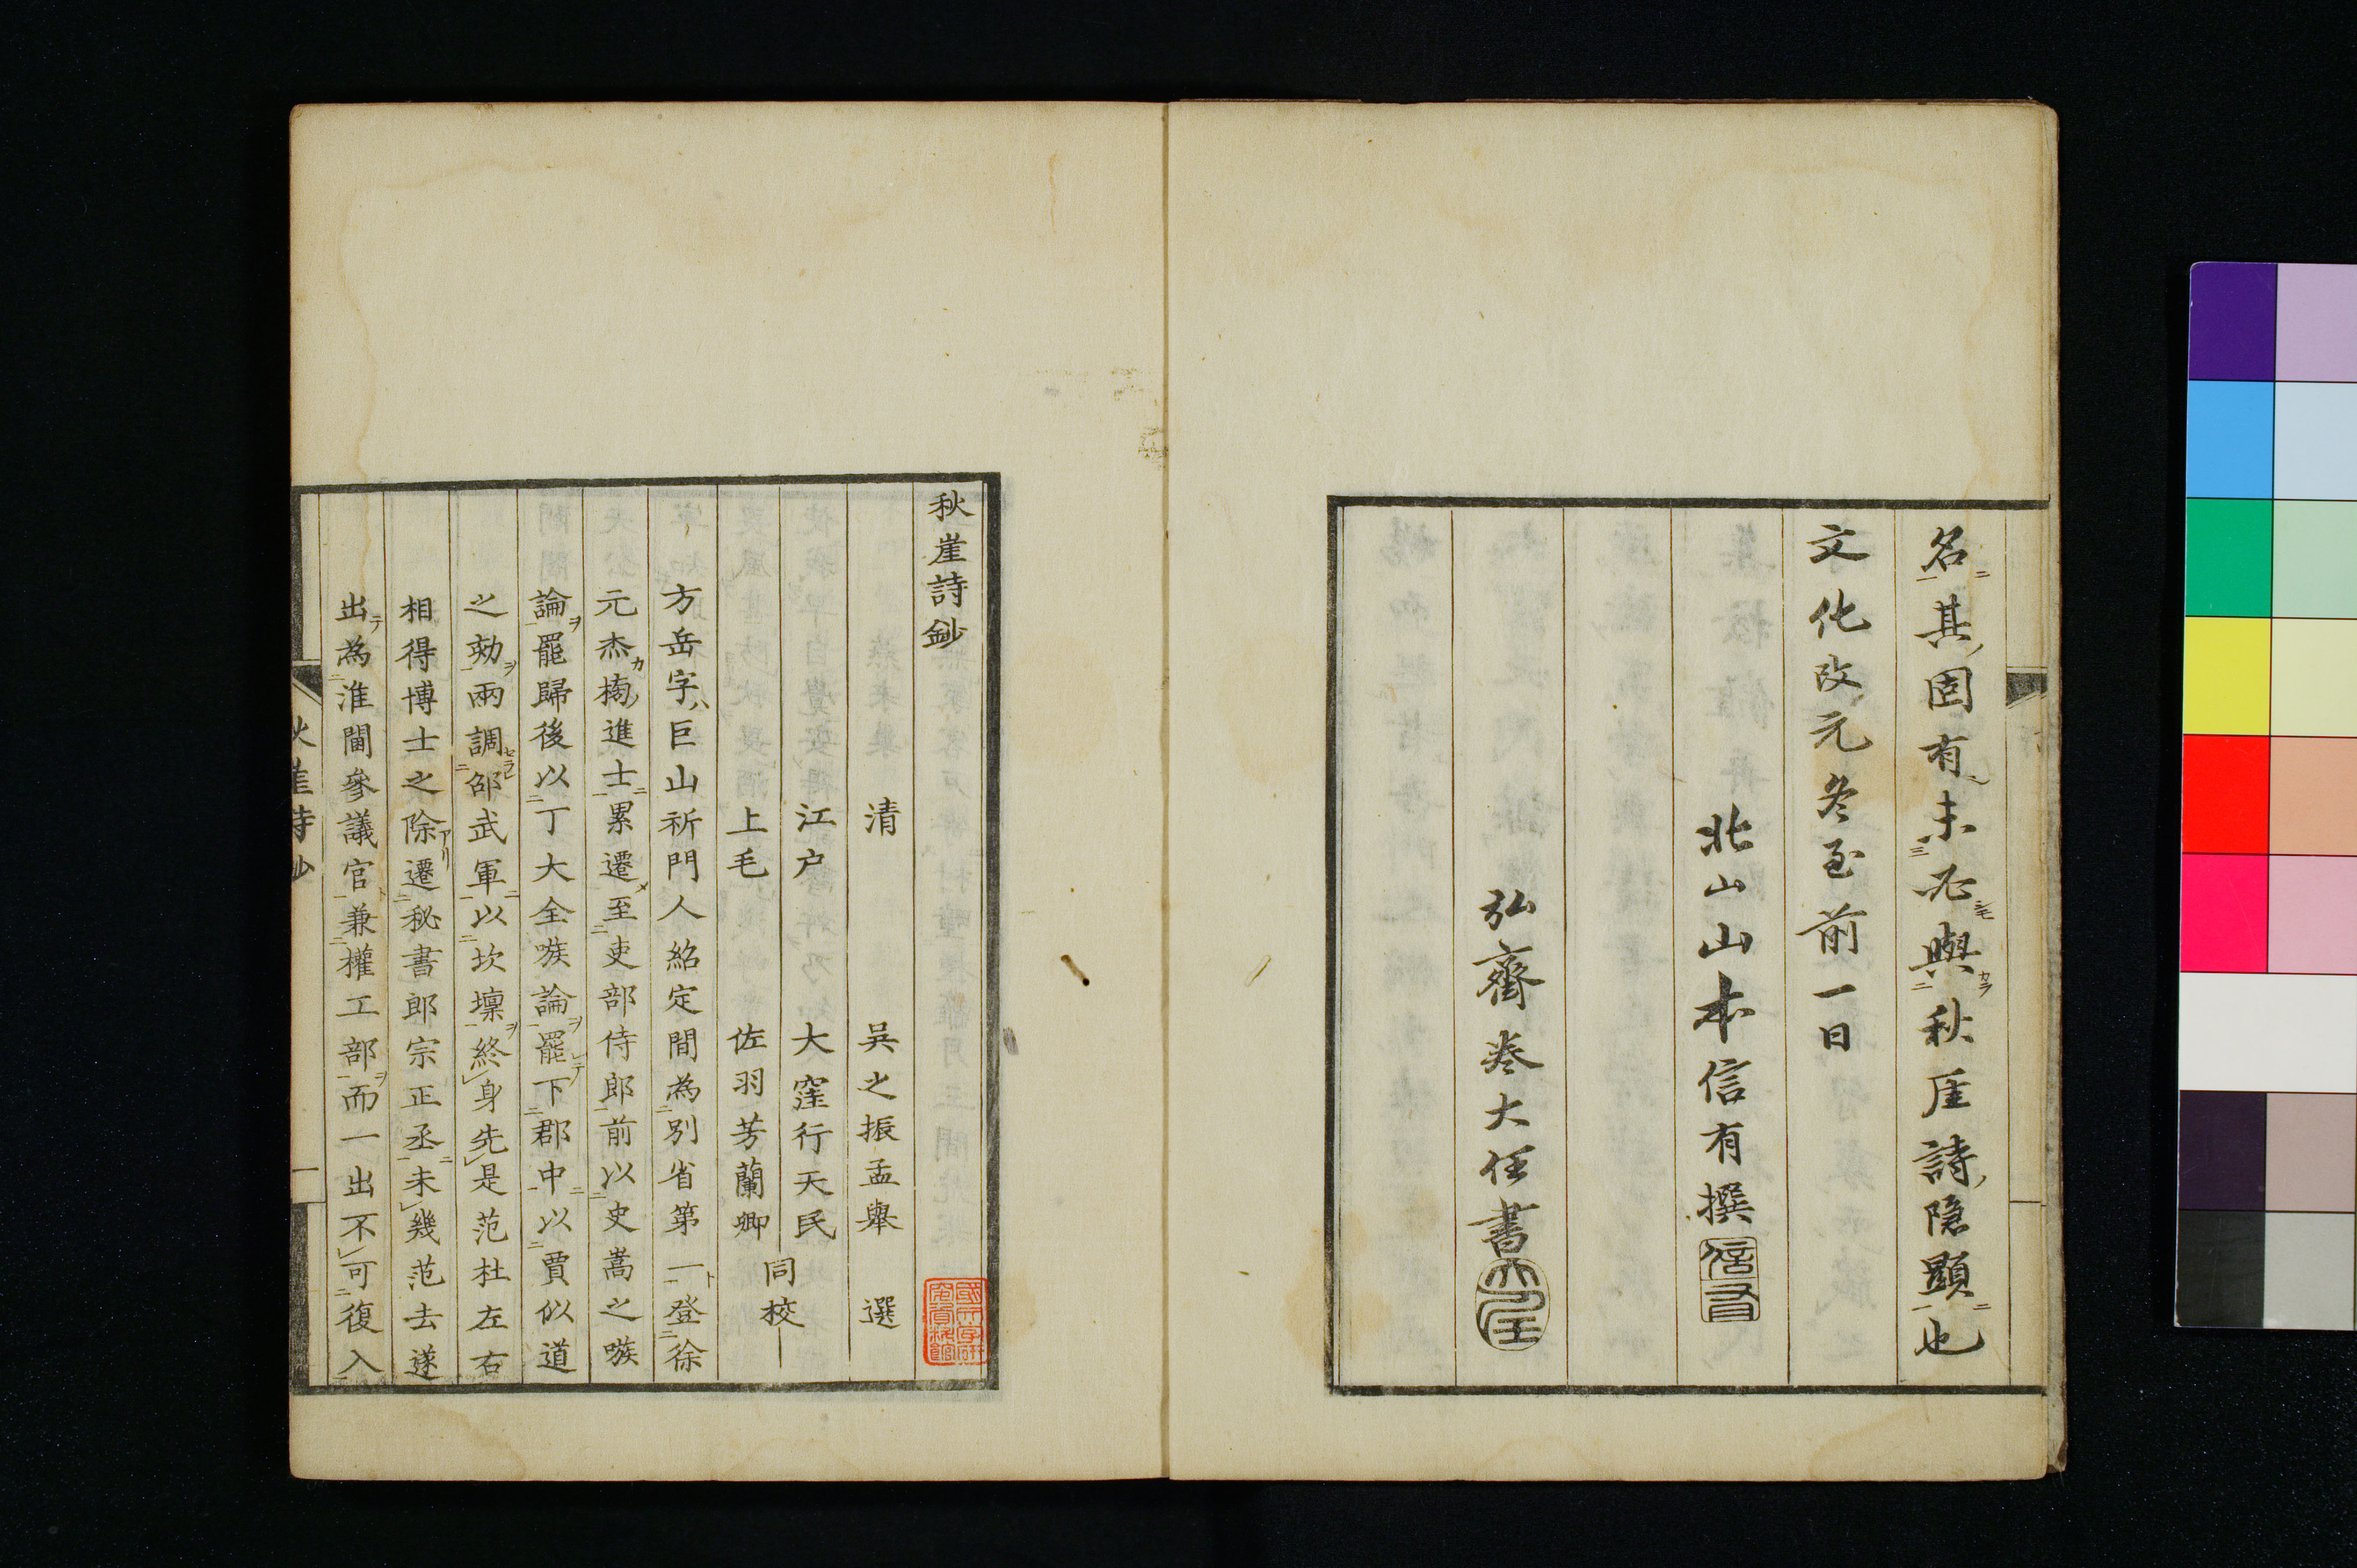 名其固有未必與秋厓詩隐顕也
文化改元冬至前一日
北山山本信有撰
信有
弘齋卷大任書
秋崖詩鈔
清 吳之振孟舉 選
江户 大窪行天民
上毛 佐羽芳蘭卿
同校
方岳字巨山祈門人紹定間為別省第一登徐
元杰榜進士累遷至吏部侍郎前以史嵩之嗾
論罷歸後以丁大全嗾論罷下郡中以賈似道
之劾兩調邵武軍以坎壈終身先是范杜左右
相得博士之除遷秘書郎宗正丞未幾范去遂
出為淮閫參議官兼權工部而一出不可復入
秋崖詩鈔 一